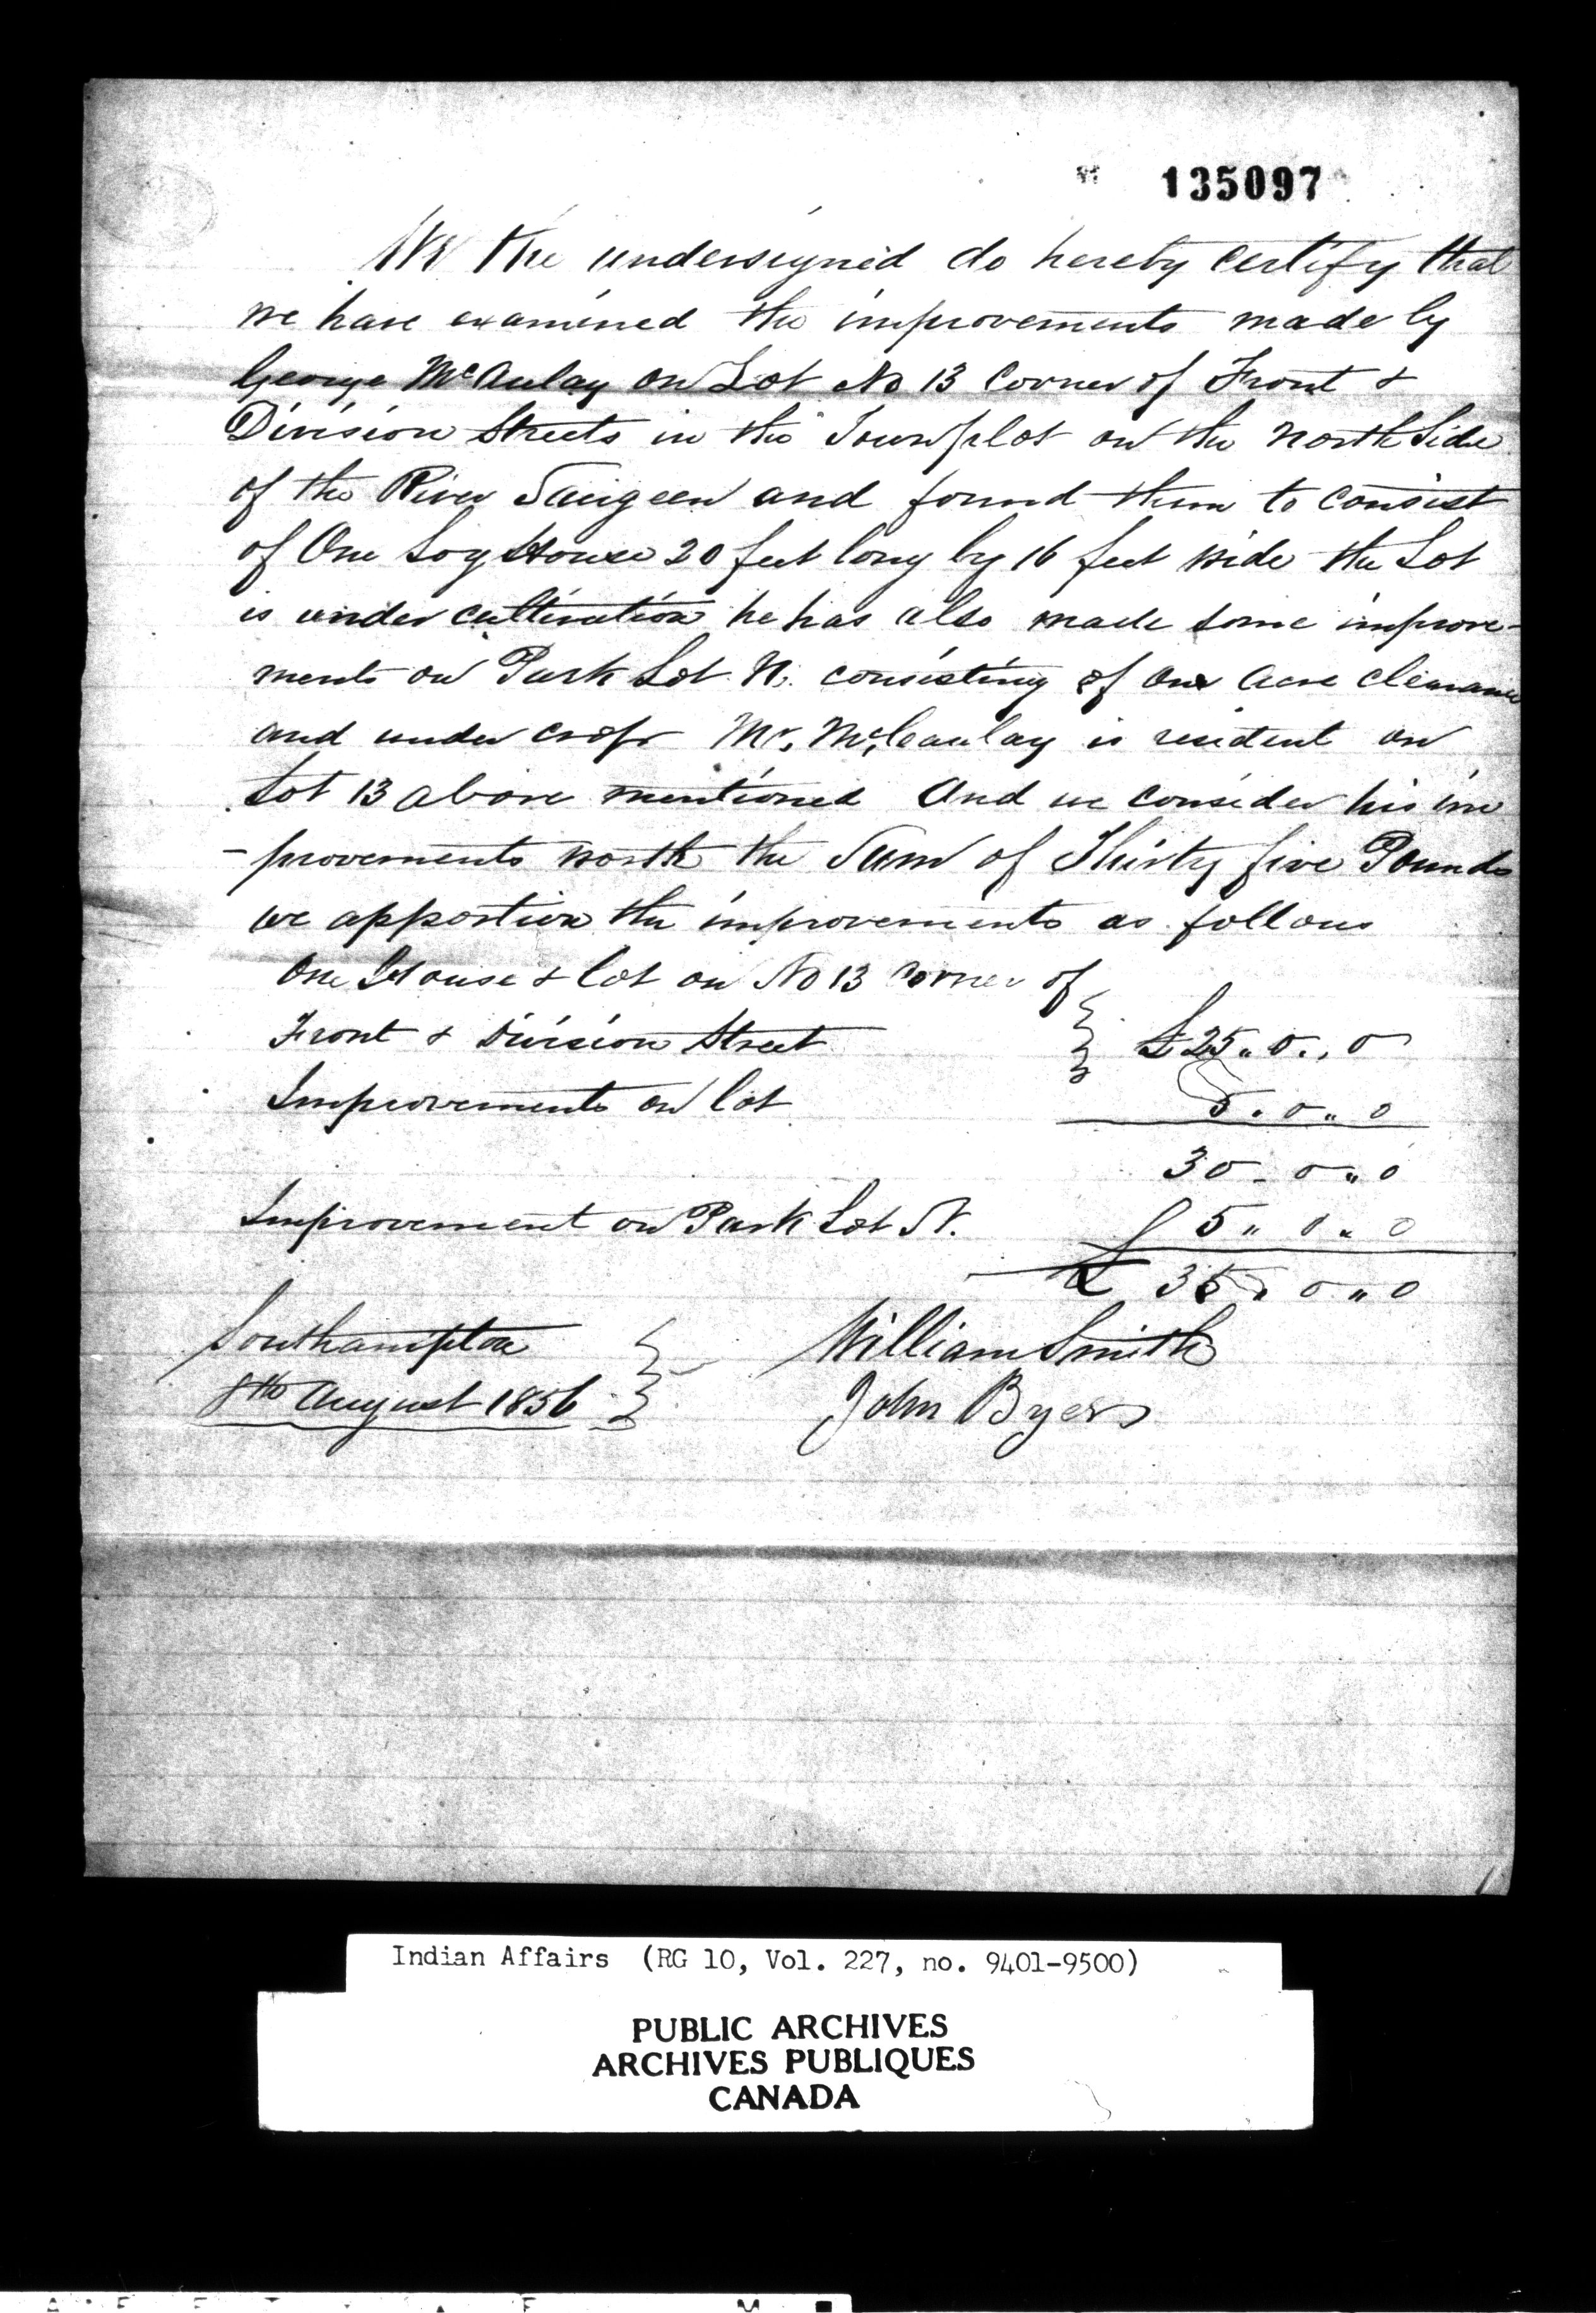 135097
We the undersigned do hereby certify that
we have examined the improvements made by
George McAulay on Lot No 13 Corner of Front &
Division Streets in the Townplot on the North Side
of the River Saugeen and found them to consist
of One Log House 20 feet long by 16 feet wide the Lot
is under cultivation he has also made some improve-
ments on Park Lot N. consisting of One Acre Clearance
and under crop Mr. McCaulay is resident on
Lot 13 above mentioned And we consider his im
-provements worth the Sum of Thirty five Pounds
we apportion the improvements as follows
One House & lot on No 13 Corner of
Front & Division Street £25 „ 0 „ 0
Improvements on lot 5 . 0 „ 0
30 - 0 „ 0
Improvement on Park Lot N. £ 5 „ 0 „ 0
£ 35 „ 0 „ 0
Southampton William Smith
8th August 1856 John Byers
Indian Affairs (RG 10, Vol. 227, no. 9401-9500)
PUBLIC ARCHIVES
ARCHIVES PUBLIQUES
CANADA